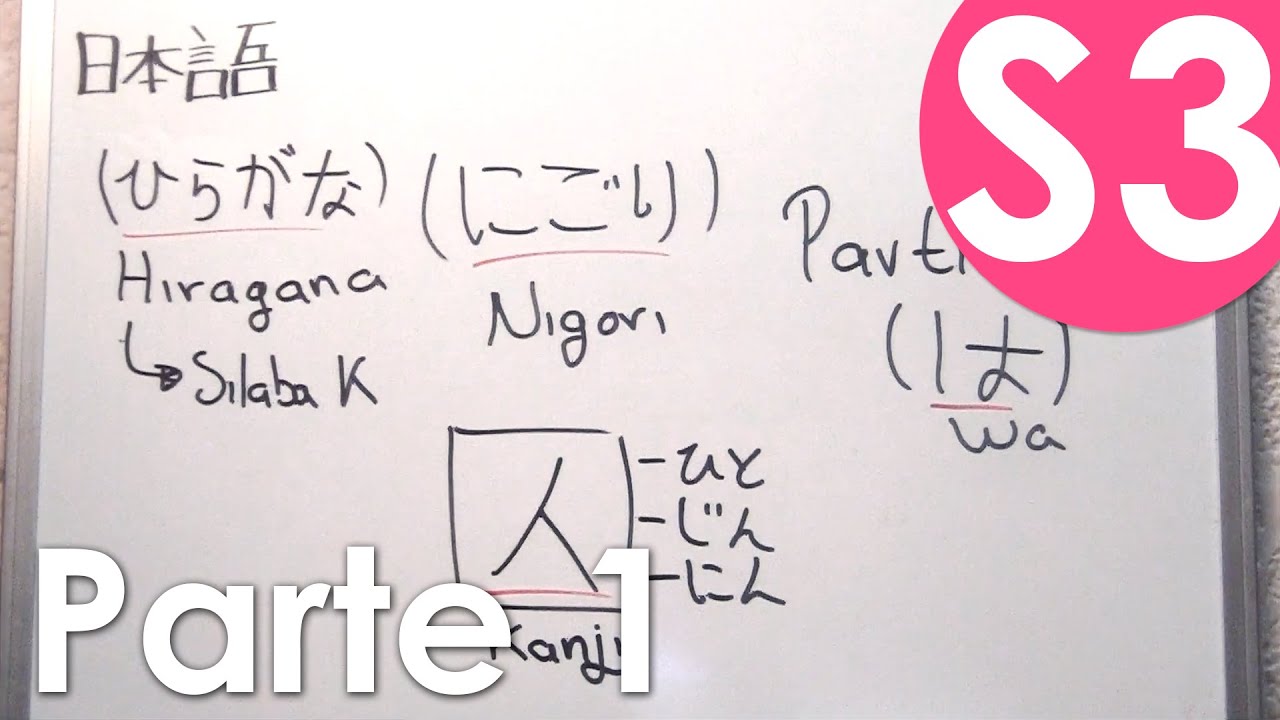 日本語
S3
(ひらがな)
(にごり)
Hiragana
Nigori
Parti
↳ Silaba K
(は)
wa
人
- ひと
- じん
- にん
Kanji
Parte 1